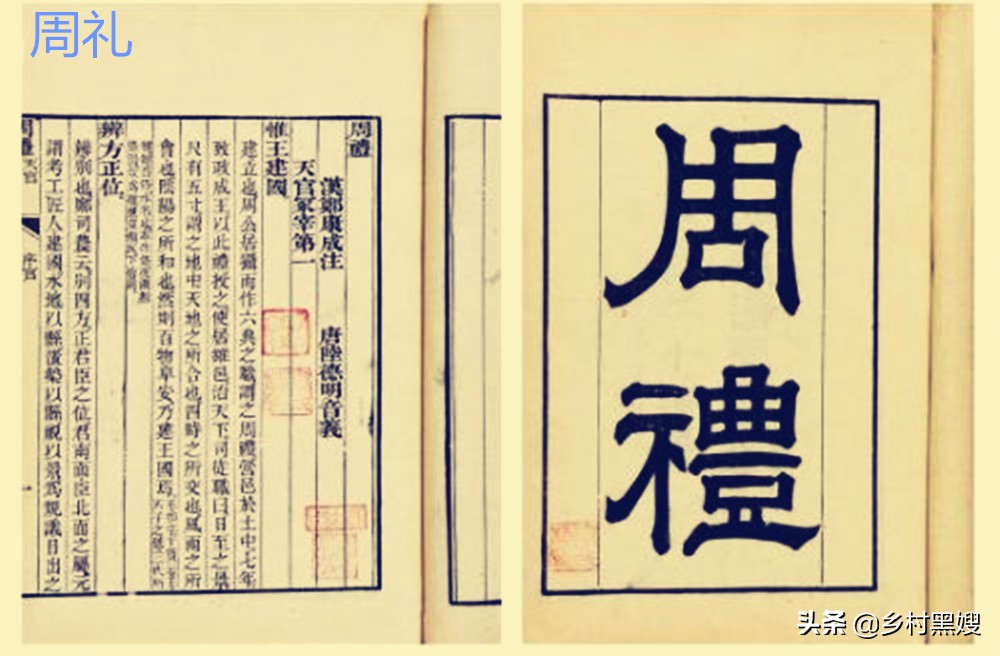 周礼
周禮
漢鄭康成注 唐陸德明音義
天官冢宰第一
惟王建國
建立也周公居攝而作六典之職謂之周禮營邑於土中七年
致政成王以此禮授之使居雒邑治天下司徒職曰日至之景
尺有五寸謂之地中天地之所合也四時之所交也風雨之所
會也陰陽之所和也然則百物阜安乃建王國焉
辨方正位
辨別也鄭司農云別四方正君臣之位君南面臣北面之屬元
謂考工匠人建國水地以縣置槷以縣眡以景爲規識日出之
周禮 天官 序官 一
周禮
头条 @乡村黑嫂